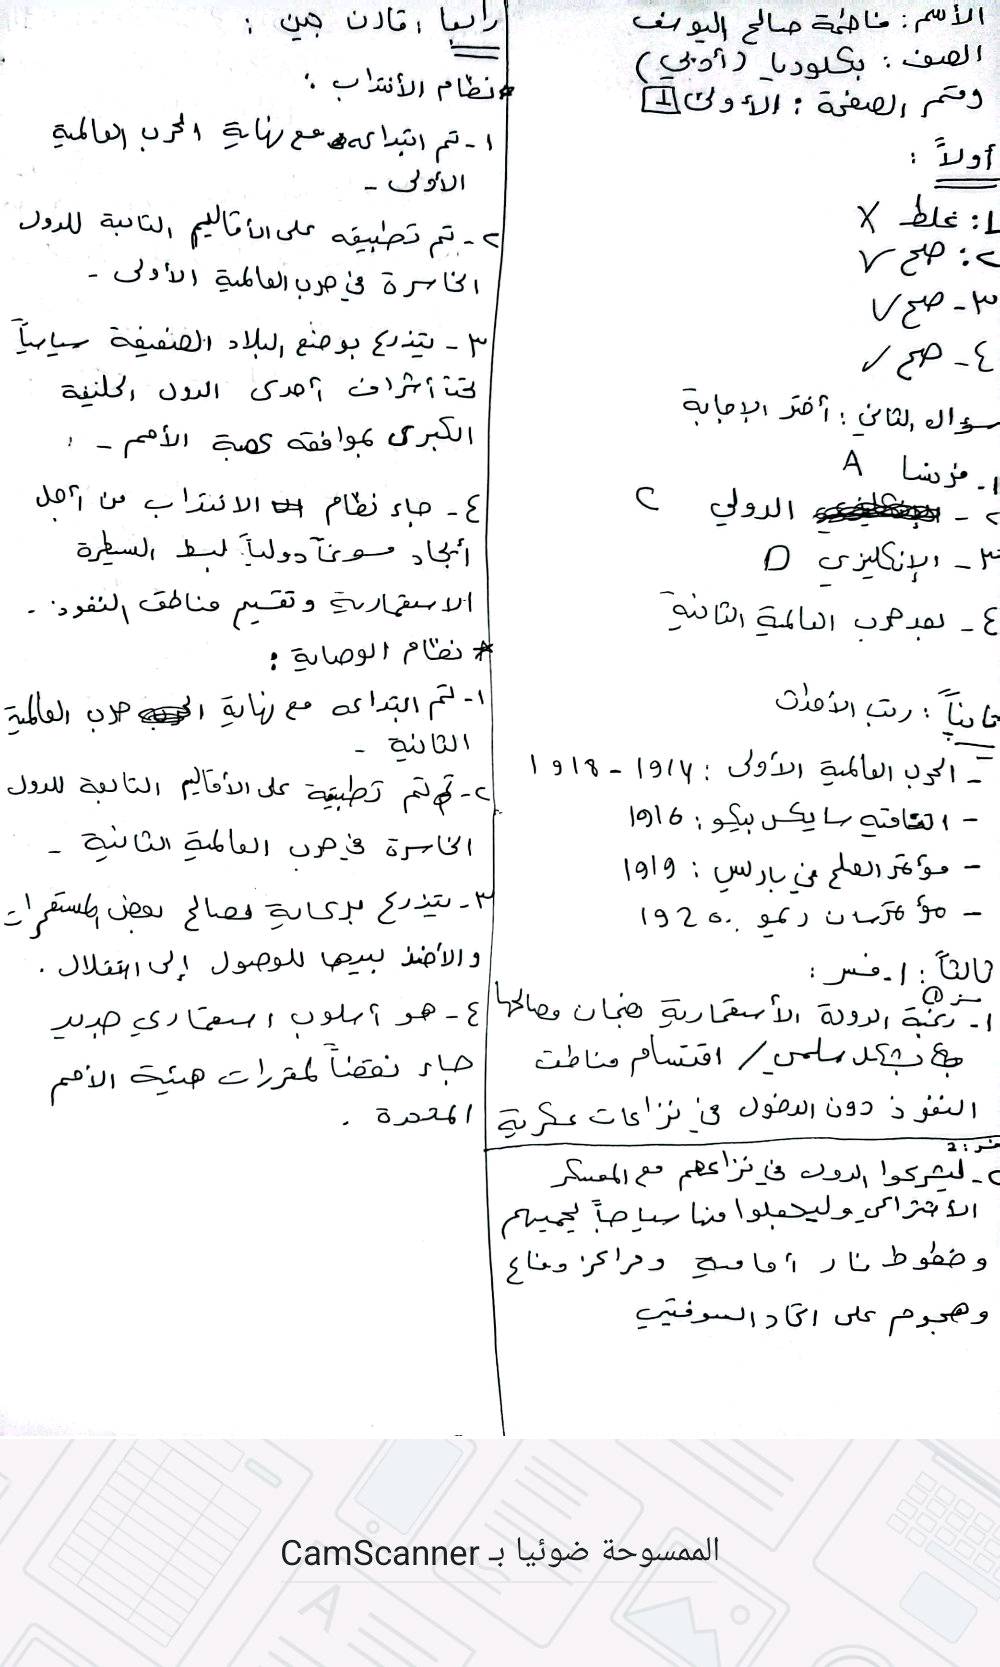 الأسم : فاطمة صالح اليوسف
الصف : بكلوديا (أدبي)
رقم الصفحة : الأولى 1
أولاً :
1: غلط X
٢: صح ✓
٣- صح ✓
٤- صح ✓
سؤال الثاني : أختر الإجابة
١- فرنسا A
٢- الدولي C
٣- الإنكليزي D
٤- بعد حرب العالمية الثانية
ثانياً : رتب الأحداث
- الحرب العالمية الأولى : 1914 - 1918
- اتفاقية سايكس بيكو : 1916
- مؤتمر الصلح في باريس : 1919
- مؤتمر سان ريمو : 1920
ثالثاً : ١- فسر :
١- رغبة الدولة الأستعمارية ضمان مصالحها
بشكل سلمي / اقتسام مناطق
النفوذ دون الدخول في نزاعات عسكرية
فسر : 2
٢- ليشركوا الدول في نزاعهم مع المعسكر
الأشتراكي وليجعلوا منها سياجاً يحميهم
وخطوط نار أمامية ومراكز دفاع
وهجوم على اتحاد السوفتيي
رابعاً : قارن بين :
* نظام الأنتداب :
١- تم ابتداعه مع نهاية الحرب العالمية
الأولى -
٢- تم تطبيقه على الأقاليم التابعة للدول
الخاسرة في حرب العالمية الأولى -
٣- يتذرع بوضع البلاد الضعيفة سياسياً
تحت أشراف أحدى الدول الحليفة
الكبرى بموافقة عصبة الأمم -
٤- جاء نظام الانتداب من أجل
أيجاد مسوغاً دولياً لبسط السيطرة
الاستعمارية وتقسيم مناطق النفوذ .
* نظام الوصاية :
١- تم ابتداعه مع نهاية حرب العالمية
الثانية -
٢- تم تطبيقه على الأقاليم التابعة للدول
الخاسرة في حرب العالمية الثانية -
٣- يتذرع برعاية مصالح بعض المستعمرات
والأخذ بيدها للوصول إلى استقلال .
٤- هو أسلوب استعماري جديد
جاء نقضاً لمقررات هيئة الأمم
المتحدة .
الممسوحة ضوئيا بـ CamScanner